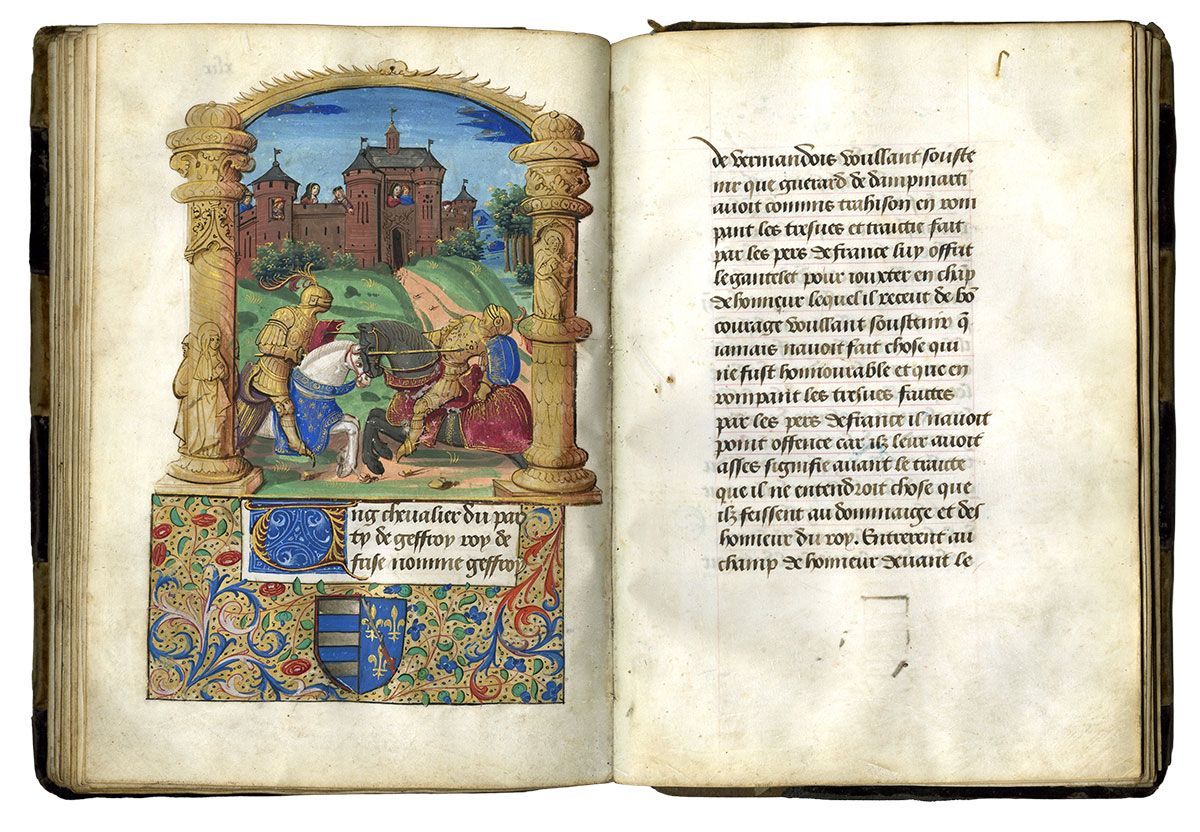 xlix
Ung chevalier du par
ty de geffroy roy de
frise nomme geffroy
de vermandois voullant souste
nir que guerard de dampmarti
avoit commis trahison en rom
pant les tresves et traictie fait
par les pers de france luy offrit
le gantelet pour iouxter en chāp
de honneur lequel il receut de bō
courage voullant soustenir q̄
iamais navoit fait chose qui
ne fust honnourable et que en
rompant les tresves faictes
par les pers de france il navoit
point offence car ilz leur avoit
asses signifie avant le traicte
que il ne entendroit chose que
ilz feissent au dommaige et des
honneur du roy. Entrerent au
champ de honneur devant le